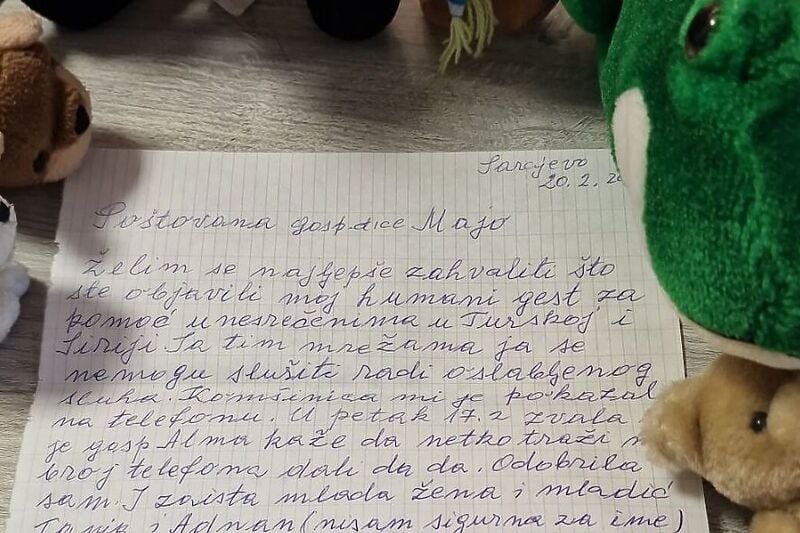 Sarajevo
20. 2. 20
Poštovana gosp-dice Majo
Želim se najljepše zahvaliti što
ste objavili moj humani gest za
pomoć unesrećenima u Turskoj i
Siriji Ja tim mrežama ja se
nemogu služiti radi oslabljenog
sluha. Komšinica mi je pokazal
na telefonu. U petak 17.2 zvala
je gosp Alma kaže da netko traži
broj telefona dali da da. Odobrila
sam. I zaista mlada žena i mladić
i Adnan (nisam sigurna za ime)